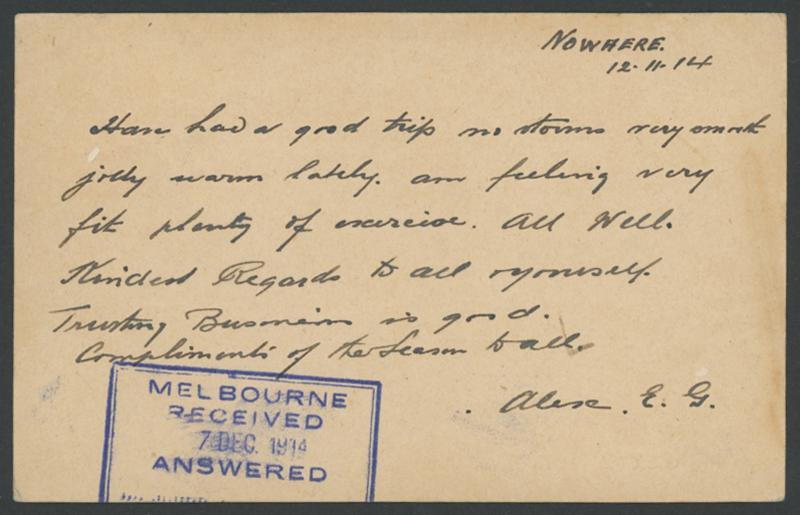 NOWHERE.
12-11-14
Have had a good trip no storms very smooth
jolly warm lately. am feeling very
fit plenty of exercise. All Well.
Kindest Regards to all & yourself.
Trusting Business is good.
Compliments of the Season to all.
Alex. E. G.
MELBOURNE
RECEIVED
7 DEC. 1914
ANSWERED